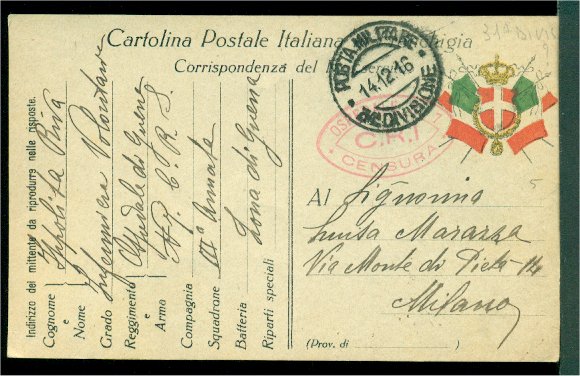 31ª DIVIS
Cartolina Postale Italiana
Corrispondenza del
POSTA MILITARE
14.12.16
DIVISIONE
C.R.I
CENSURA
Indirizzo del mittente da riprodurre nelle risposte.
Cognome Ippolita Riva
e
Nome
Grado Infermiera Volontaria
Reggimento Ospedale di Guerra
e
Arma C. R. I.
Compagnia
Squadrone IIIª Armata
Batteria
Riparti speciali Zona di Guerra
Al Signorina
Luisa Marazza
Via Monte di Pietà
Milano
(Prov. di )
5